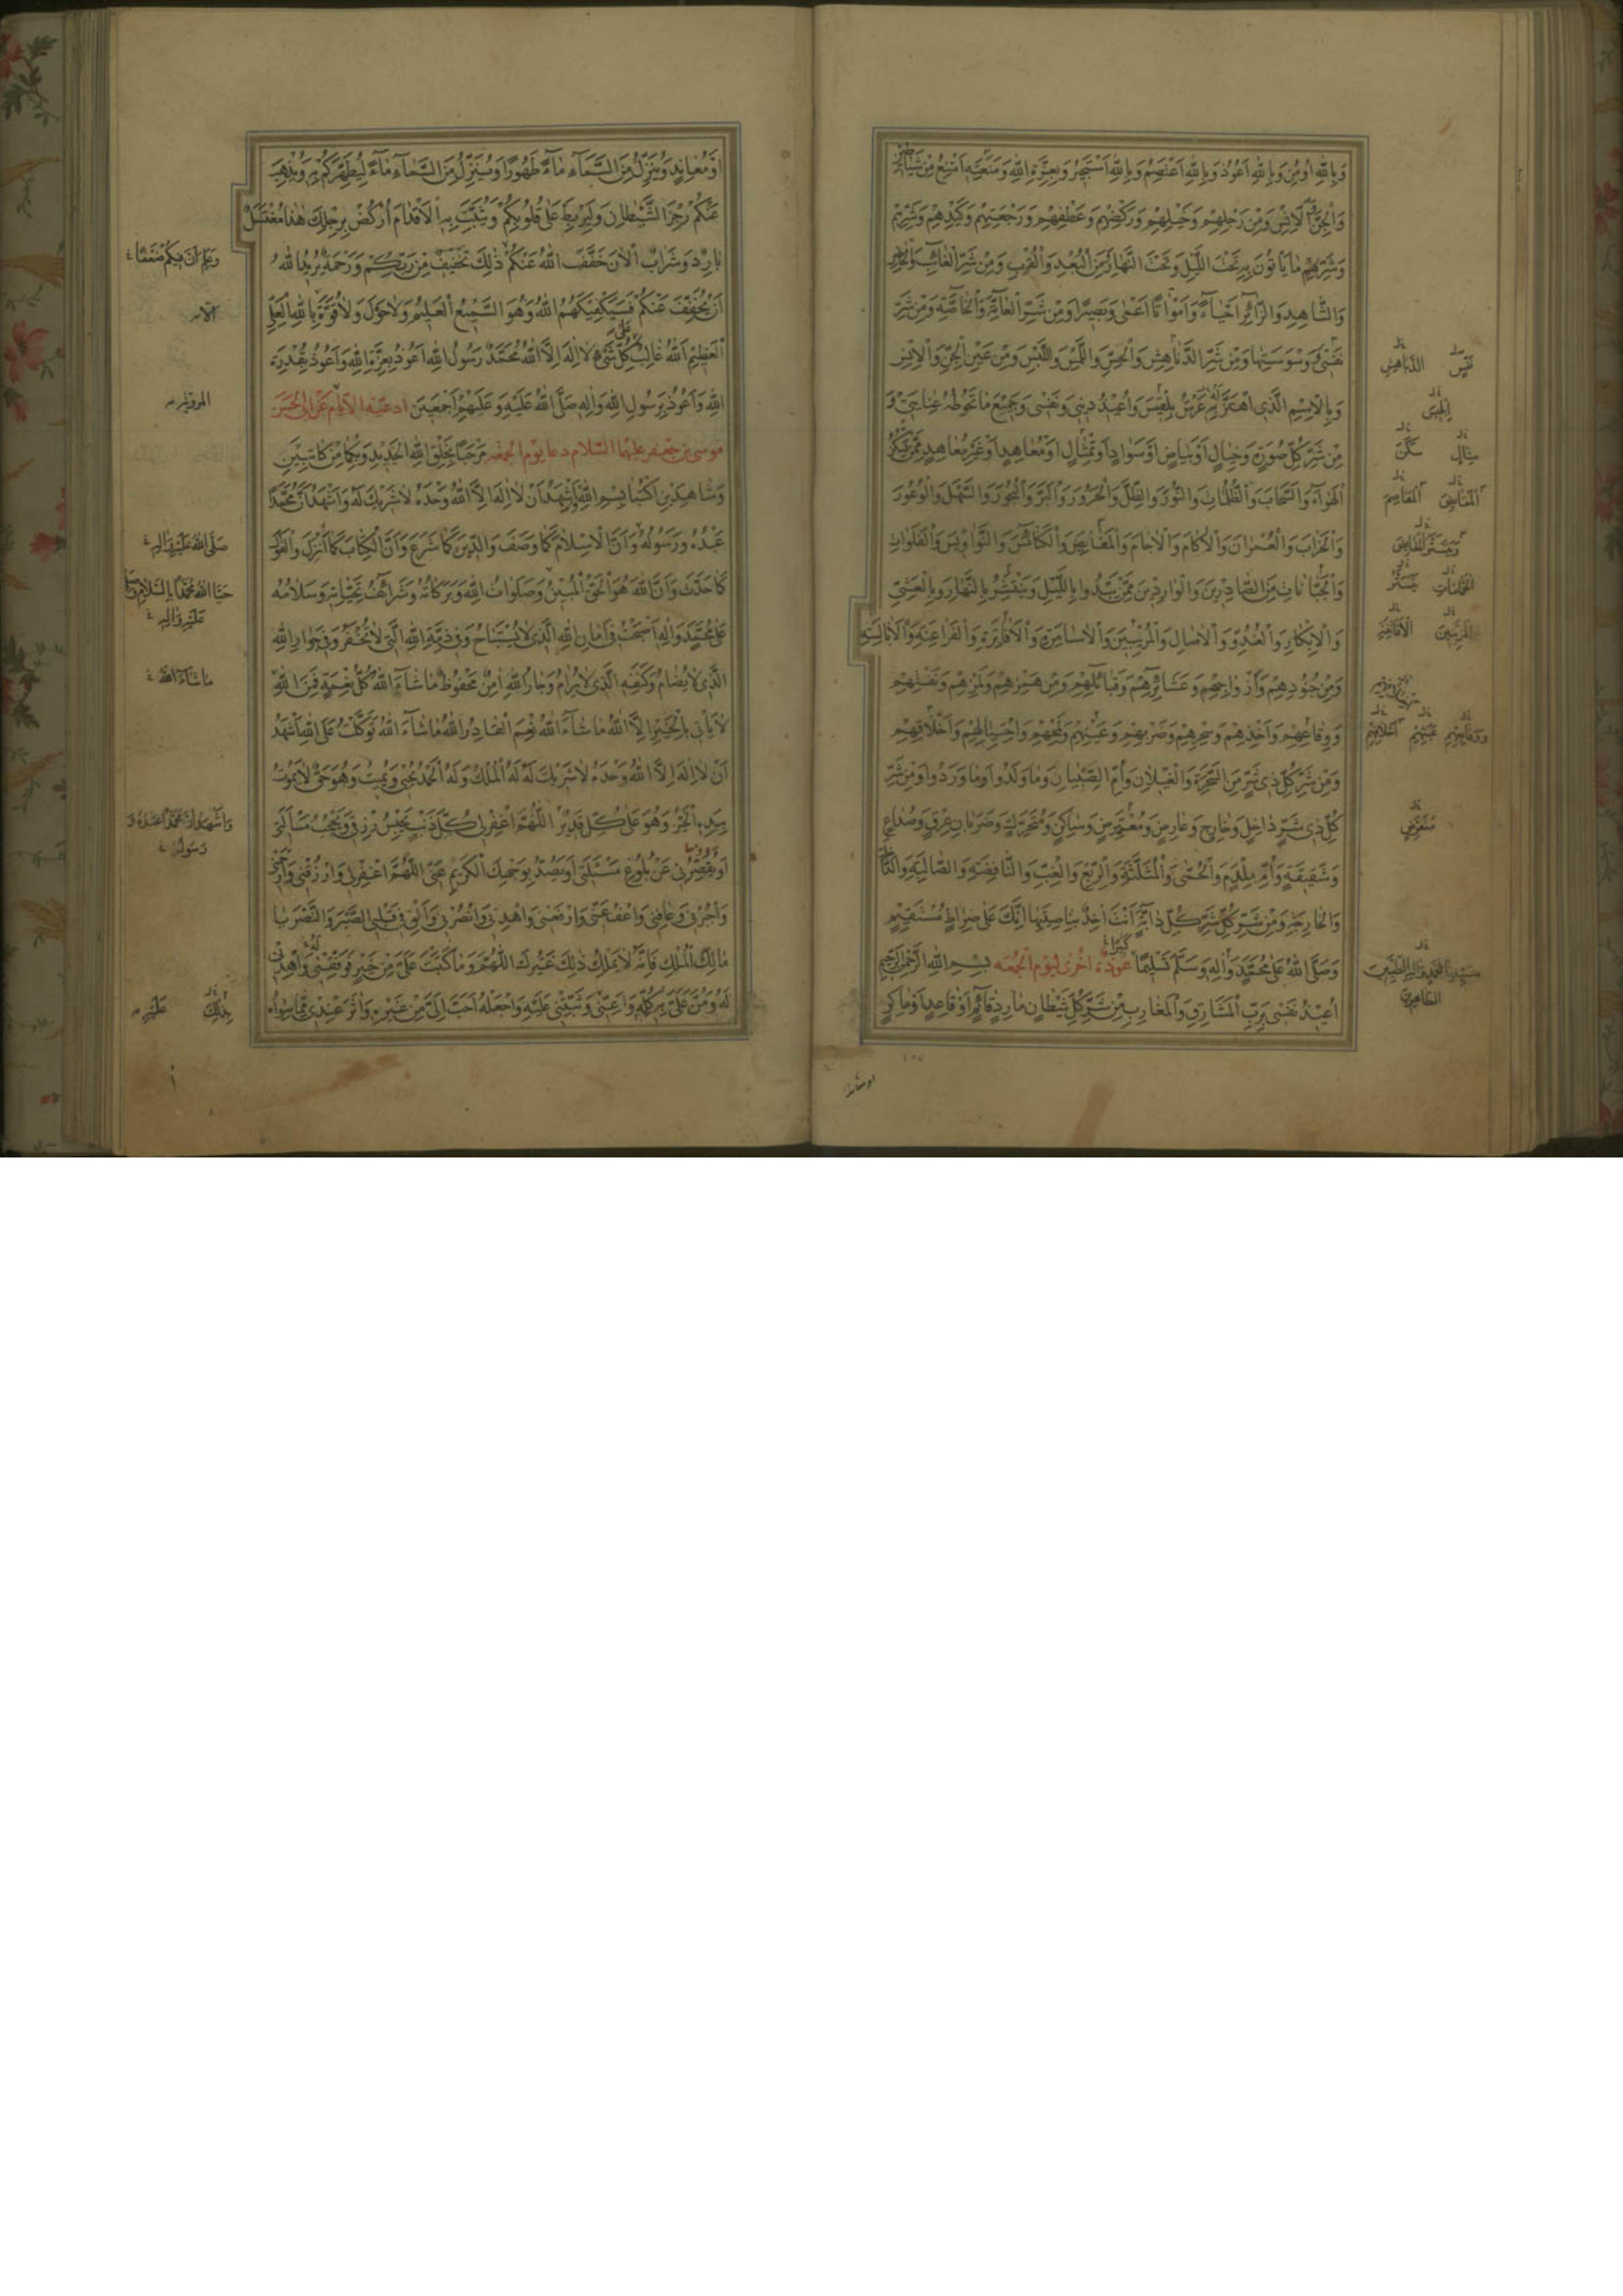 وَبِاللّٰهِ اُومِنُ وَبِاللّٰهِ اَعُوذُ وَبِاللّٰهِ اَعْتَصِمُ وَبِاللّٰهِ اَسْتَجِيرُ وَبِعِزَّةِ اللّٰهِ وَمَنَعَتِهِ اَمْتَنِعُ مِنْ شَيَاطِينِ
وَمِنْ رَجِلِهِمْ وَخَيْلِهِمْ وَرَكْضِهِمْ وَعَطْفِهِمْ وَرَجْعَتِهِمْ وَكَيْدِهِمْ وَشَرِّهِمْ
وَشَرِّ مَا يَأْتُونَ بِهِ تَحْتَ اللَّيْلِ وَتَحْتَ النَّهَارِ مِنَ الْبُعْدِ وَالْقُرْبِ وَمِنْ شَرِّ الْغَائِبِ وَالْحَاضِرِ
وَالشَّاهِدِ وَالزَّائِرِ اَحْيَاءً وَاَمْوَاتًا اَعْمٰى وَبَصِيرًا وَمِنْ شَرِّ الْعَامَّةِ وَالْخَاصَّةِ وَمِنْ شَرِّ
نَفْسِي وَوَسْوَسَتِهَا وَمِنْ شَرِّ الدَّنَاهِشِ وَالْحِسِّ وَاللَّمْسِ وَاللَّبْسِ وَمِنْ عَيْنِ الْجِنِّ وَالْاِنْسِ
وَبِالْاِسْمِ الَّذِي اهْتَزَّ لَهُ عَرْشُ بِلْقِيسَ وَاُعِيذُ دِينِي وَنَفْسِي وَجَمِيعَ مَا تَحُوطُهُ عِنَايَتِي وَ
مِنْ شَرِّ كُلِّ صُورَةٍ وَخَيَالٍ اَوْ بَيَاضٍ اَوْ سَوَادٍ اَوْ تِمْثَالٍ اَوْ مُعَاهِدٍ اَوْ غَيْرِ مُعَاهِدٍ مِمَّنْ يَسْكُنُ
الْهَوَاءَ وَالسَّحَابَ وَالظُّلُمَاتِ وَالنُّورَ وَالظِّلَّ وَالْحَرُورَ وَالْبَرَّ وَالْبُحُورَ وَالسَّهْلَ وَالْوُعُورَ
وَالْخَرَابَ وَالْعُمْرَانَ وَالْاٰكَامَ وَالْاٰجَامَ وَالْمَغَايِضَ وَالْكَنَائِسَ وَالنَّوَاوِيسَ وَالْفَلَوَاتِ
وَالْجَبَّانَاتِ مِنَ الصَّادِرِينَ وَالْوَارِدِينَ مِمَّنْ يَبْدُو بِاللَّيْلِ وَيَنْتَشِرُ بِالنَّهَارِ وَبِالْعَشِيِّ
وَالْاِبْكَارِ وَالْغُدُوِّ وَالْاٰصَالِ وَالْمُرِيبِينَ وَالْاَسَامِرَةِ وَالْاَفَاتِرَةِ وَالْفَرَاعِنَةِ وَالْاَبَالِسَةِ
وَمِنْ جُنُودِهِمْ وَاَزْوَاجِهِمْ وَعَشَائِرِهِمْ وَقَبَائِلِهِمْ وَمِنْ هَمْزِهِمْ وَلَمْزِهِمْ وَنَفْثِهِمْ
وَوِقَاعِهِمْ وَاَخْذِهِمْ وَسِحْرِهِمْ وَضَرْبِهِمْ وَعَيْنِهِمْ وَلَمْحِهِمْ وَاحْتِيَالِهِمْ وَاَخْلَاقِهِمْ
وَمِنْ شَرِّ كُلِّ ذِي شَرٍّ مِنَ السَّحَرَةِ وَالْغِيلَانِ وَاُمِّ الصِّبْيَانِ وَمَا وَلَدُوا وَمَا وَرَدُوا وَمِنْ شَرِّ
كُلِّ ذِي شَرٍّ دَاخِلٍ وَخَارِجٍ وَعَارِضٍ وَمُعْتَرِضٍ وَسَاكِنٍ وَمُتَحَرِّكٍ وَضَرَبَانِ عِرْقٍ وَصُدَاعٍ
وَشَقِيقَةٍ وَاُمِّ مِلْدَمٍ وَالْحُمّٰى وَالْمُثَلَّثَةِ وَالرِّبْعِ وَالْغِبِّ وَالنَّافِضَةِ وَالصَّالِبَةِ وَالدَّاخِلَةِ
وَالْخَارِجَةِ وَمِنْ شَرِّ كُلِّ دَابَّةٍ اَنْتَ اٰخِذٌ بِنَاصِيَتِهَا اِنَّكَ عَلٰى صِرَاطٍ مُسْتَقِيمٍ
وَصَلَّى اللّٰهُ عَلٰى مُحَمَّدٍ وَاٰلِهِ وَسَلَّمَ تَسْلِيمًا كَثِيرًا عوذة اخرى ليوم الجمعه بِسْمِ اللّٰهِ الرَّحْمٰنِ الرَّحِيمِ
اُعِيذُ نَفْسِي بِرَبِّ الْمَشَارِقِ وَالْمَغَارِبِ مِنْ شَرِّ كُلِّ شَيْطَانٍ مَارِدٍ قَائِمٍ اَوْ قَاعِدٍ اَوْ مَاكِرٍ
الدَّنَاهِشِ
اِبْلِيسَ
مِثَالٍ سَكَنَ
مُتَعَرِّضٍ
الطَّاهِرِينَ
اَوْ مُعَانِدٍ وَيُنَزِّلُ مِنَ السَّمَاءِ مَاءً طَهُورًا وَيُنَزِّلُ مِنَ السَّمَاءِ مَاءً لِيُطَهِّرَكُمْ بِهِ وَيُذْهِبَ
عَنْكُمْ رِجْزَ الشَّيْطَانِ وَلِيَرْبِطَ عَلٰى قُلُوبِكُمْ وَيُثَبِّتَ بِهِ الْاَقْدَامَ اُرْكُضْ بِرِجْلِكَ هٰذَا مُغْتَسَلٌ
بَارِدٌ وَشَرَابٌ اَلْاٰنَ خَفَّفَ اللّٰهُ عَنْكُمْ ذٰلِكَ تَخْفِيفٌ مِنْ رَبِّكُمْ وَرَحْمَةٌ يُرِيدُ اللّٰهُ
اَنْ يُخَفِّفَ عَنْكُمْ فَسَيَكْفِيكَهُمُ اللّٰهُ وَهُوَ السَّمِيعُ الْعَلِيمُ وَلَا حَوْلَ وَلَا قُوَّةَ اِلَّا بِاللّٰهِ الْعَلِيِّ
الْعَظِيمِ اَللّٰهُ غَالِبٌ عَلٰى كُلِّ شَيْءٍ لَا اِلٰهَ اِلَّا اللّٰهُ مُحَمَّدٌ رَسُولُ اللّٰهِ اَعُوذُ بِعِزَّةِ اللّٰهِ وَاَعُوذُ بِقُدْرَةِ
اللّٰهِ وَاَعُوذُ بِرَسُولِ اللّٰهِ وَاٰلِهِ صَلَّى اللّٰهُ عَلَيْهِ وَعَلَيْهِمْ اَجْمَعِينَ ادعية الايام عن ابى الحسن
موسى بن جعفر عليهما السلام دعا يوم الجمعه مَرْحَبًا بِخَلْقِ اللّٰهِ الْجَدِيدِ وَبِكُمَا مِنْ كَاتِبَيْنِ
وَشَاهِدَيْنِ اُكْتُبَا بِسْمِ اللّٰهِ اَشْهَدُ اَنْ لَا اِلٰهَ اِلَّا اللّٰهُ وَحْدَهُ لَا شَرِيكَ لَهُ وَاَشْهَدُ اَنَّ مُحَمَّدًا
عَبْدُهُ وَرَسُولُهُ وَاَنَّ الْاِسْلَامَ كَمَا وَصَفَ وَالدِّينَ كَمَا شَرَعَ وَاَنَّ الْكِتَابَ كَمَا اَنْزَلَ وَالْقَوْلَ
كَمَا حَدَّثَ وَاَنَّ اللّٰهَ هُوَ الْحَقُّ الْمُبِينُ وَصَلَوَاتُ اللّٰهِ وَبَرَكَاتُهُ وَشَرَائِفُ تَحِيَّاتِهِ وَسَلَامُهُ
عَلٰى مُحَمَّدٍ وَاٰلِهِ اَصْبَحْتُ فِي اَمَانِ اللّٰهِ الَّذِي لَا يُسْتَبَاحُ وَفِي ذِمَّةِ اللّٰهِ الَّتِي لَا تُخْفَرُ وَفِي جِوَارِ اللّٰهِ
الَّذِي لَا يُضَامُ وَكَنَفِهِ الَّذِي لَا يُرَامُ وَجَارُ اللّٰهِ اٰمِنٌ مَحْفُوظٌ مَا شَاءَ اللّٰهُ كُلُّ نِعْمَةٍ فَمِنَ اللّٰهِ
لَا يَأْتِي بِالْخَيْرِ اِلَّا اللّٰهُ مَا شَاءَ اللّٰهُ نِعْمَ الْقَادِرُ اللّٰهُ مَا شَاءَ اللّٰهُ تَوَكَّلْتُ عَلَى اللّٰهِ اَشْهَدُ
اَنْ لَا اِلٰهَ اِلَّا اللّٰهُ وَحْدَهُ لَا شَرِيكَ لَهُ لَهُ الْمُلْكُ وَلَهُ الْحَمْدُ يُحْيِي وَيُمِيتُ وَهُوَ حَيٌّ لَا يَمُوتُ
بِيَدِهِ الْخَيْرُ وَهُوَ عَلٰى كُلِّ شَيْءٍ قَدِيرٌ اَللّٰهُمَّ اغْفِرْ لِي كُلَّ ذَنْبٍ يَحْبِسُ رِزْقِي وَيَحْجُبُ مَسْأَلَتِي
اَوْ يَقْصُرُ بِي عَنْ بُلُوغِ مَسْئَلَتِي اَوْ يَصُدُّ بِوَجْهِكَ الْكَرِيمِ عَنِّي اَللّٰهُمَّ اغْفِرْ لِي وَارْزُقْنِي وَارْحَمْنِي
وَاجْبُرْنِي وَعَافِنِي وَاعْفُ عَنِّي وَارْفَعْنِي وَاهْدِنِي وَانْصُرْنِي وَاَلْقِ فِي قَلْبِي الصَّبْرَ وَالنَّصْرَ يَا
مَالِكَ الْمُلْكِ فَاِنَّهُ لَا يَمْلِكُ ذٰلِكَ غَيْرُكَ اَللّٰهُمَّ وَمَا كَتَبْتَ عَلَيَّ مِنْ خَيْرٍ فَوَفِّقْنِي وَاهْدِنِي
لَهُ وَمُنَّ عَلَيَّ بِهِ كُلِّهِ وَاَعِنِّي وَثَبِّتْنِي عَلَيْهِ وَاجْعَلْهُ اَحَبَّ اِلَيَّ مِنْ غَيْرِهِ وَاٰثَرَ عِنْدِي مِمَّا سِوَاهُ
وَعَلِمَ اَنَّ فِيكُمْ ضَعْفًا
صَلَّى اللّٰهُ عَلَيْهِ وَاٰلِهِ
حَيَّا اللّٰهُ مُحَمَّدًا بِالسَّلَامِ
عَلَيْهِ وَاٰلِهِ
مَا شَاءَ اللّٰهُ
وَاَشْهَدُ اَنَّ مُحَمَّدًا عَبْدُهُ وَ
رَسُولُهُ
بِذٰلِكَ عَلَيْهِ